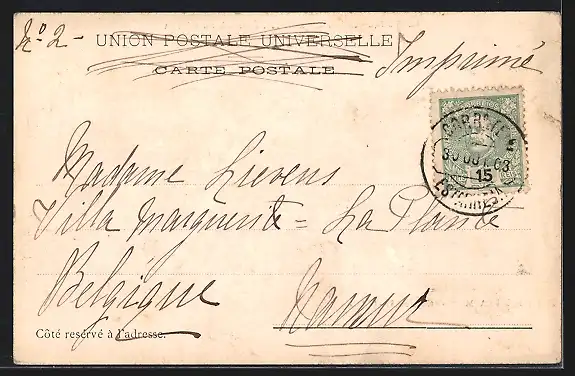 Nº 2 -
UNION POSTALE UNIVERSELLE
CARTE POSTALE
Imprimé
CORREIOS
15
Madame Lievens
Villa Marguerite = La Plante
Belgique
Namur
Côté réservé à l'adresse.